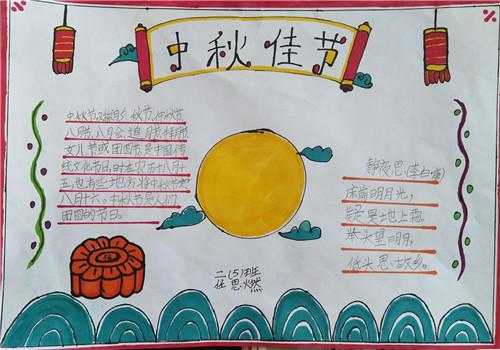 中秋佳节
中秋节又称月夕、秋节、仲秋节、
八月节、八月会、追月节、拜月节、
女儿节或团圆节,是中国传
统文化节日,时在农历八月十
五,也有些地方将中秋节定
八月十六。中秋节是人们
团圆的节日。
静夜思(李白·唐)
床前明月光,
疑是地上霜。
举头望明月,
低头思故乡。
二(5)班
任思燃